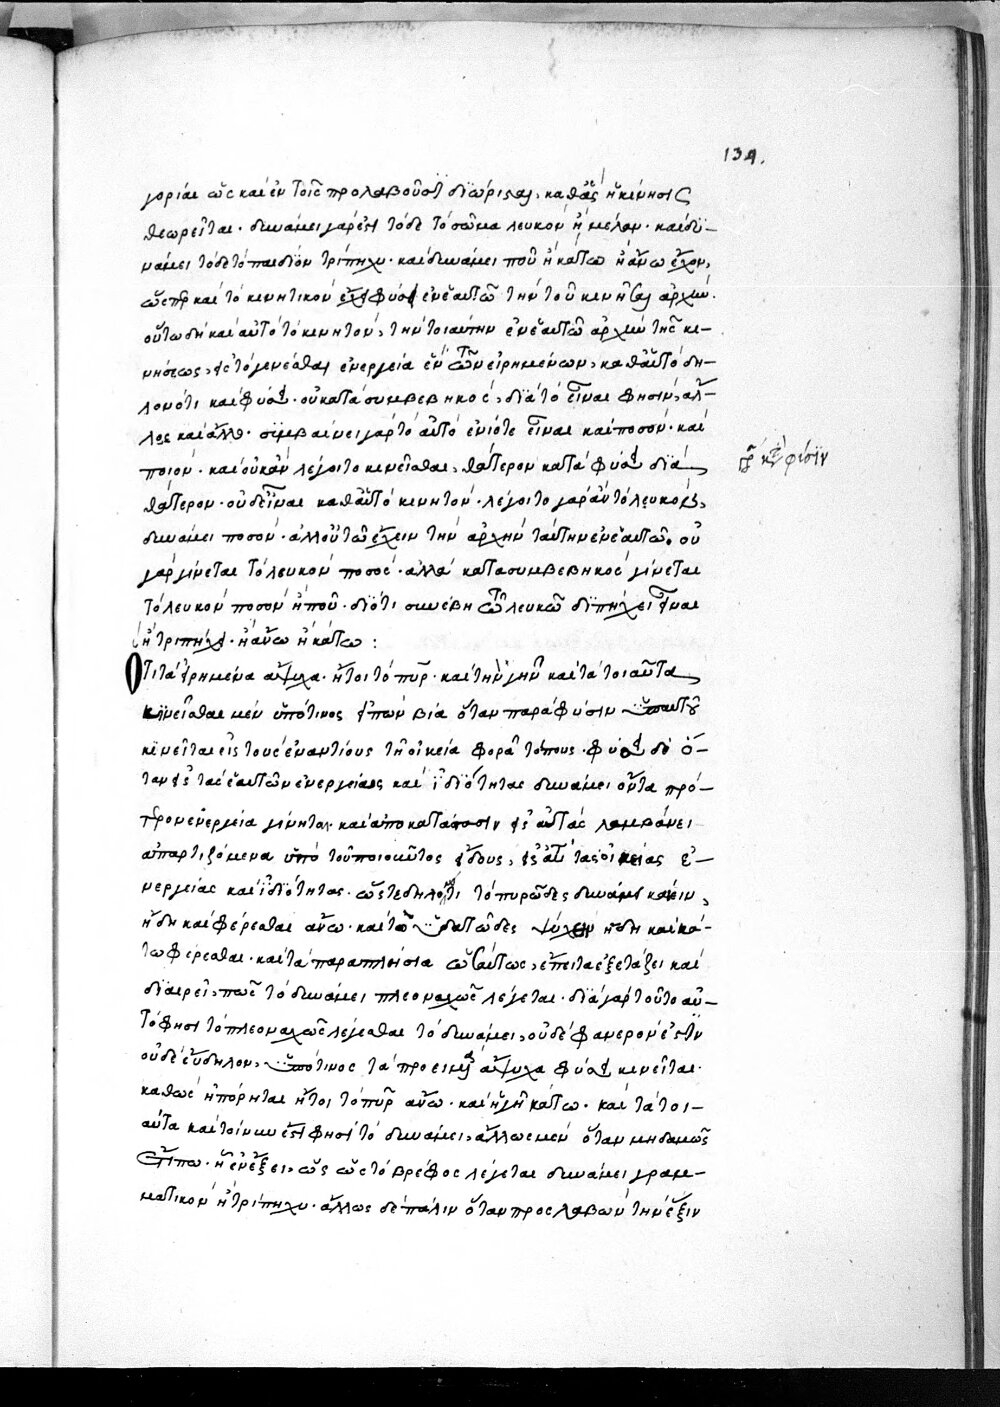 134.
γορίαι ὡς καὶ ἐν τοῖς προλαβοῦσι διώρισται, καθ' ἃς ἡ κίνησις
θεωρεῖται. δυνάμει γάρ ἐστι τόδε τὸ σῶμα λευκὸν ἢ μέλαν. καὶ δυ-
νάμει τόδε τὸ παιδίον τρίπηχυ. καὶ δυνάμει ποῦ ἢ κάτω ἢ ἄνω ἔχον,
ὥσπερ καὶ τὸ κινητικὸν ἔχει φύσει ἐν ἑαυτῶ τὴν τοῦ κινῆσαι ἀρχήν.
οὕτω δὴ καὶ αὐτὸ τὸ κινητόν, τὴν τοιαύτην ἐν ἑαυτῶ ἀρχὴν τῆς κι-
νήσεως, εἰς τὸ γενέσθαι ἐνεργεία ἓν τῶν εἰρημένων, καθ' αὑτὸ δη-
λονότι καὶ φύσει. οὐ κατὰ συμβεβηκός, διὰ τὸ εἶναι φησὶν ἀλ-
λως καὶ ἄλλο. συμβαίνει γὰρ τὸ αὐτὸ ἐνίοτε εἶναι καὶ ποσόν. καὶ
ποιόν. καὶ οὐκ ἂν λέγοιτο κινεῖσθαι, θάτερον κατὰ φύσιν διὰ
θάτερον. οὐδ' εἶναι καθ' αὑτὸ κινητόν. λέγοιτο γὰρ ἂν τὸ λευκὸν,
δυνάμει ποσόν. ἀλλ' οὐ τῶ ἔχειν τὴν ἀρχὴν ταύτην ἐν ἑαυτῶ. οὐ
γὰρ γίνεται τὸ λευκὸν ποσός. ἀλλὰ κατὰ συμβεβηκὸς γίνεται
τὸ λευκὸν ποσὸν ἢ ποῦ. διότι συνέβη τῶ λευκῶ διπήχει εἶναι
ἢ τριπήχει. ἢ ἄνω ἢ κάτω:
Ὅτι τὰ εἰρημένα ἄψυχα. ἤτοι τὸ πῦρ. καὶ τὴν γῆν καὶ τὰ τοιαῦτα
κινεῖσθαι μὲν ὑπό τινος εἰπὼν βία ὅταν παρὰ φύσιν ἑαυτοῦ
κινεῖται εἰς τοὺς ἐναντίους τῆ οἰκεία φορᾶ τόπους. φύσει δὲ ὅ-
ταν εἰς τὰς ἑαυτῶν ἐνεργείας καὶ ἰδιότητας δυνάμει ὄντα πρό-
τερον ἐνεργεία γίνηται. καὶ ἀποκατάστασιν εἰς αὐτὰς λαμβάνει
ἀπαρτιζόμενα ὑπὸ τοῦ ποιοῦντος εἴδους, εἰς αὐτὰς οἰκείας ἐ-
νεργείας καὶ ἰδιότητας. ὥστε δηλονότι τὸ πυρῶδες δυνάμει καίειν,
ἤδη καὶ φέρεσθαι ἄνω. καὶ τὸ ὑδατῶδες ψύχειν ἤδη καὶ κά-
τω φέρεσθαι. καὶ τὰ παραπλήσια ὡσαύτως, ἔπειτα ἐξετάζει καὶ
διαιρεῖ, πῶς τὸ δυνάμει πλεοναχῶς λέγεται. διὰ γὰρ τοῦτο αὐ-
τὸ φησὶ τὸ πλεοναχῶς λέγεσθαι τὸ δυνάμει, οὐδὲ φανερόν ἐστιν
οὐδὲ εὔδηλον, ὑπό τινος τὰ προειρημένα ἄψυχα φύσει κινεῖται.
καθὼς ἠπόρηται ἤτοι τὸ πῦρ ἄνω. καὶ ἡ γῆ κάτω. καὶ τὰ τοι-
αῦτα καὶ τοίνυν ἐστὶ φησὶ τὸ δυνάμει, ἄλλως μὲν ὅταν μηδαμῶς
ἔτι πω. ἢ ἐν ἕξει, ὡς ὡς τὸ βρέφος λέγεται δυνάμει γραμ-
ματικὸν ἢ τρίπηχυ. ἄλλως δὲ πάλιν ὅταν προσλαβὼν τὴν ἕξιν